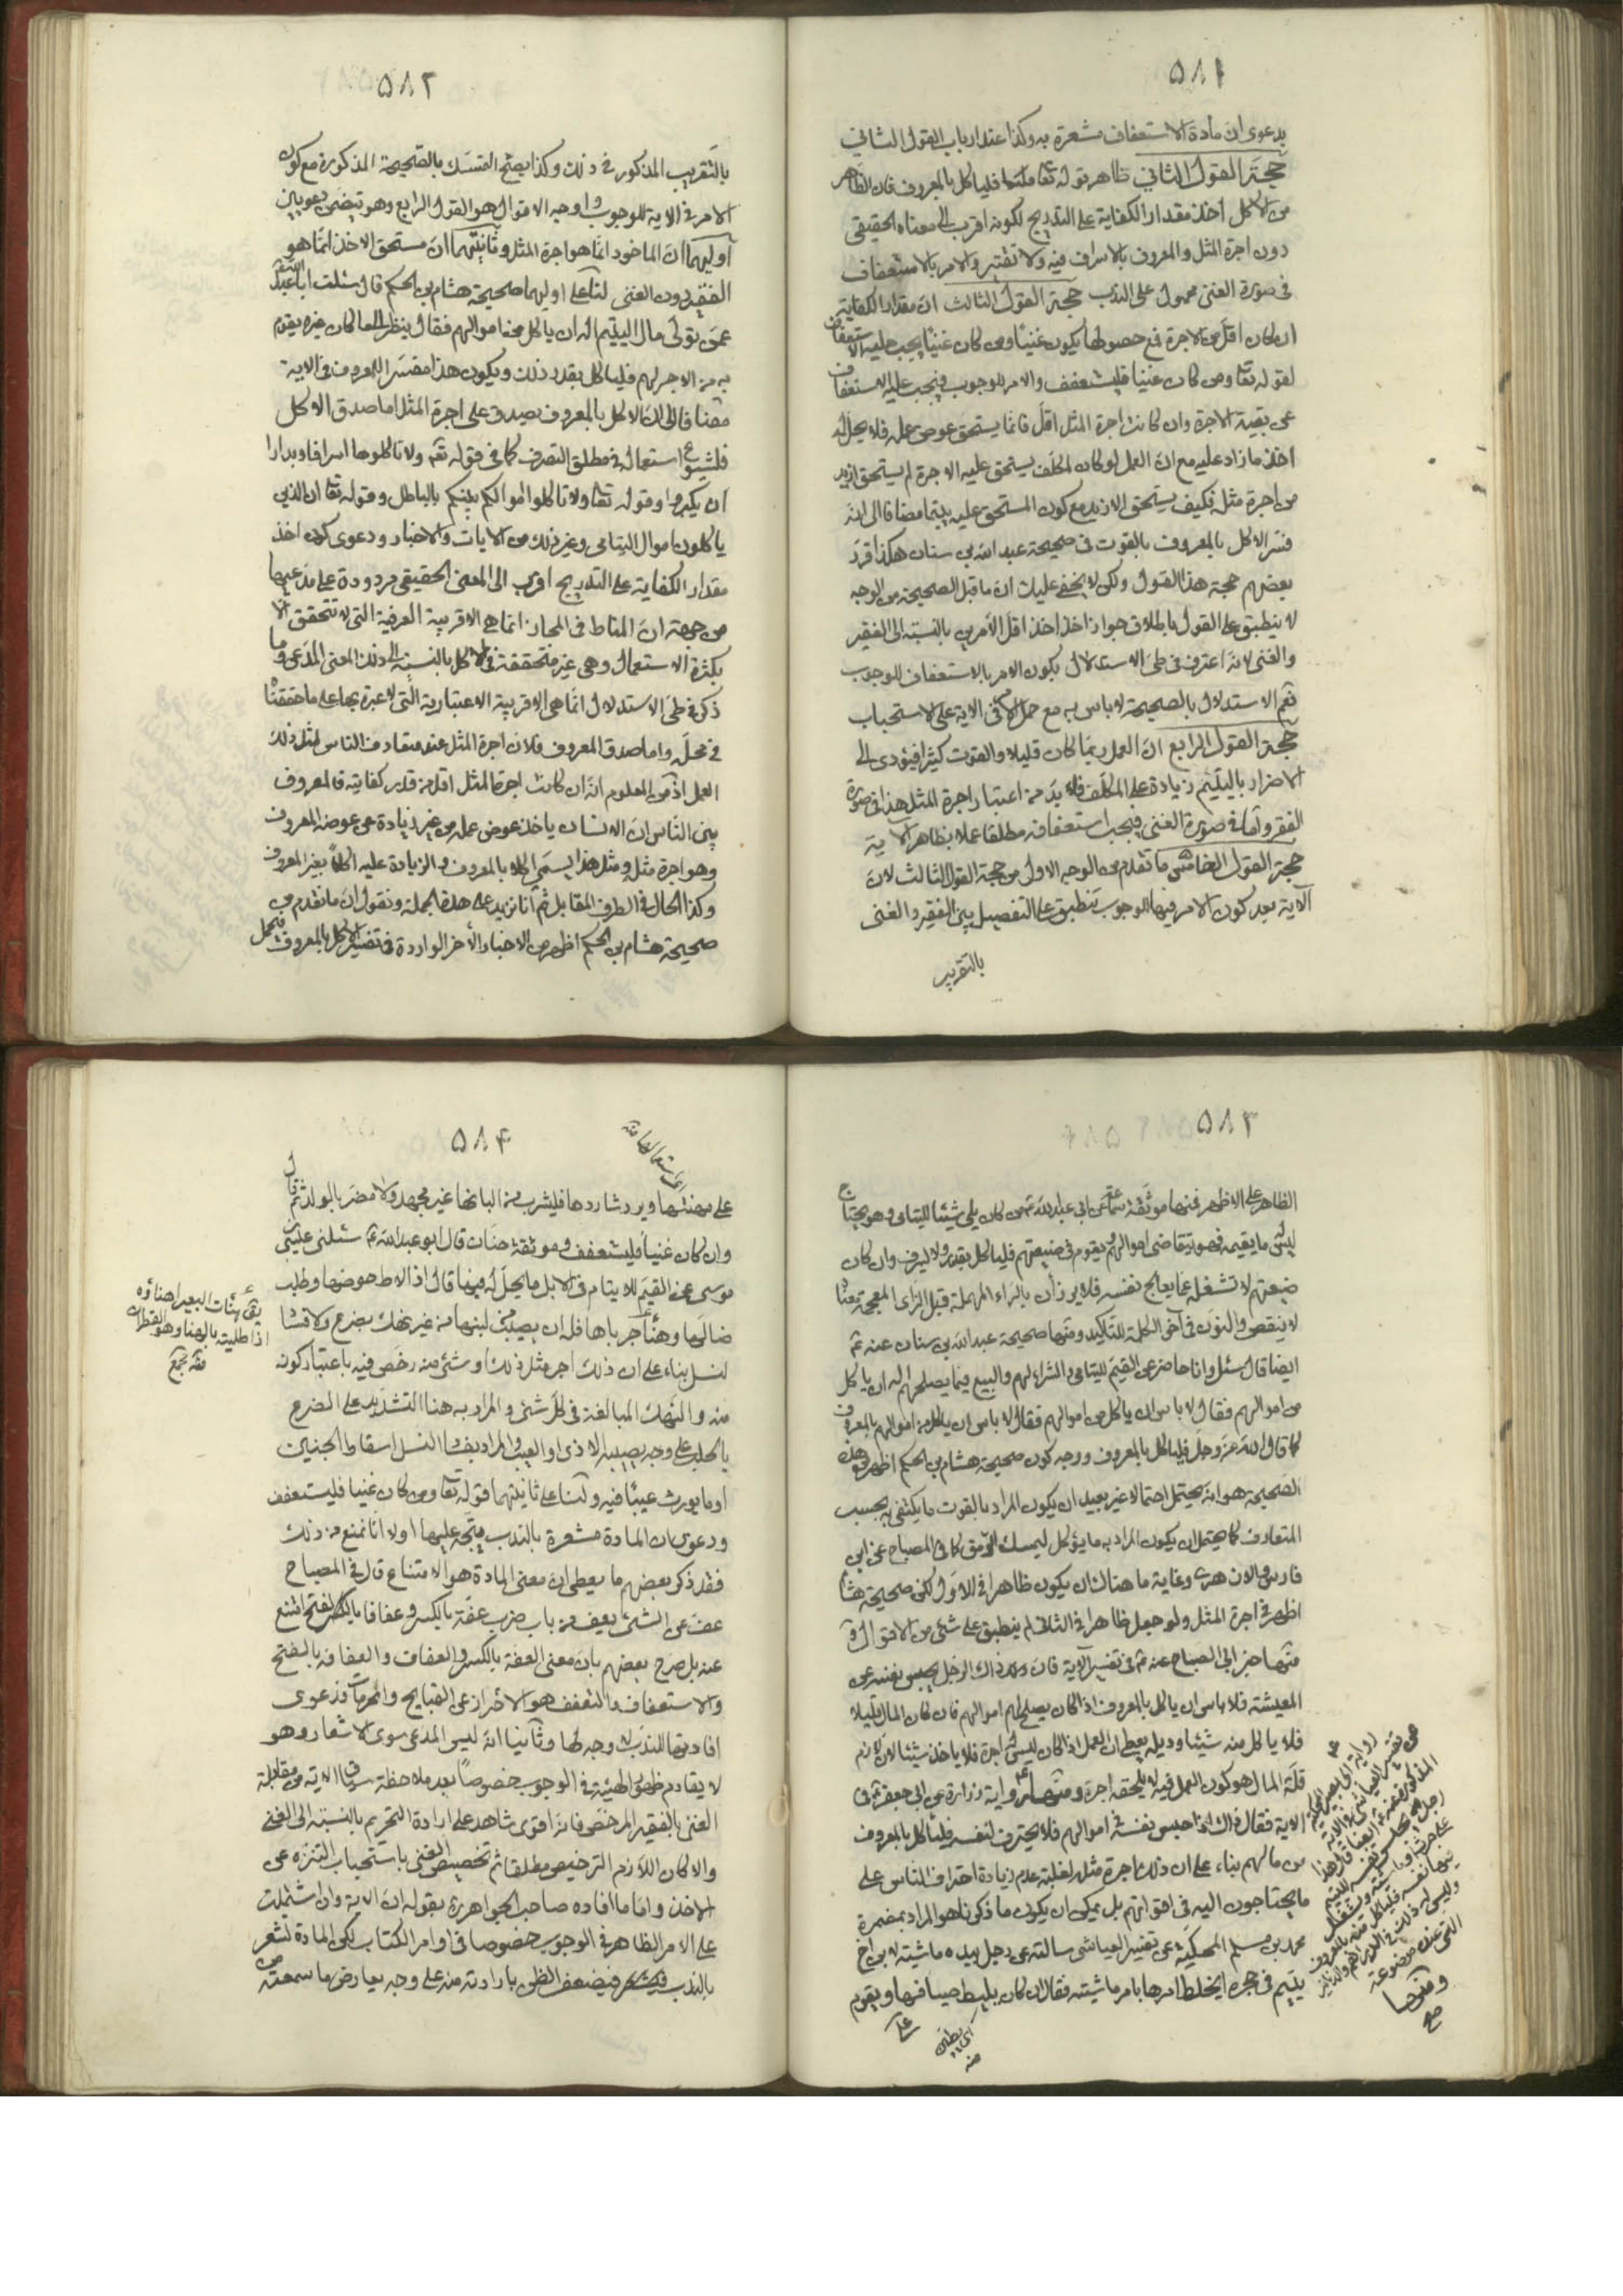 ۵۸۱
بدعوى ان مادة الاستعفاف مشعرة به وكذا عند ارباب القول الثاني
حجة القول الثاني ظاهر قوله تعالى فلياكل بالمعروف فان الظاهر
من الاكل اخذ مقدار الكفاية على التدريج لكونه اقرب الى معناه الحقيقي
دون اجرة المثل والمعروف بالاسراف فيه ولا تقتير والامر بالاستعفاف
فى صورة الغنى محمول على الندب حجة القول الثالث ان مقدار الكفاية
ان كان اقل من الاجرة فمع حصولها يكون غنيّا ومن كان غنيّا يجب عليه الاستعفاف
لقوله تعا ومن كان غنيا فليستعفف والامر للوجوب فيجب عليه الاستعفاف
عن بقية الاجرة وان كانت اجرة المثل اقل فانما يستحق عوض عمله فلا يحل له
اخذ ما زاد عليه مع ان العمل لو كان لمكلف يستحق عليه الاجرة لم يستحق ازيد
من اجرة مثله فكيف يستحق الازيد مع كون المستحق عليه يتيما مضافا الى انه
فسر الاكل بالمعروف بالقوت فى صحيحة عبد الله بن سنان هكذا قرر
بعضهم حجة هذا القول ولكن لا يخفى عليك ان ما قبل الصحيحة من الوجه
لا ينطبق على القول باطلاق جواز اخذ اقل الامرين بالنسبة الى الفقير
والغنى لانه اعترف فى طى الاستدلال بكون الامر بالاستعفاف للوجوب
نعم الاستدلال بالصحيحة لا باس به مع حمل الامر فى الاية على الاستحباب
حجة القول الرابع ان العمل ربما كان قليلا والقوت كثيرا فيؤدى الى
الاضرار باليتيم زيادة على المكلف فلا بد من اعتبار اجرة المثل هذا فى صورة
الفقر واما فى صورة الغنى فيجب استعفافه مطلقا عملا بظاهر الاية
حجة القول الخامس ما تقدم من الوجه الاول من حجة القول الثالث لان
الآية بعد كون الامر فيها للوجوب تنطبق على التفصيل بين الفقير والغنى
بالتقريب
۵۸۲
بالتقريب المذكور فى ذلك وكذا يصح التمسك بالصحيحة المذكورة مع كون
الامر فى الاية للوجوب واوجه الاقوال هو القول الرابع وهو تيضمن دعويين
اوليهما ان الماخوذ انما هو اجرة المثل وثانيتهما ان مستحق الاخذ انما هو
الفقير دون الغنى لنا على اوليهما صحيحة هشام بن الحكم قال سئلت ابا عبد الله
عمن تولى مال اليتيم اله ان ياكل منه اموالهم فقال ينظر الى ما كان غيره يقوم
به من الاجر لهم فلياكل بقدر ذلك ويكون هذا مفسرا للمعروف فى الاية
مضافا الى ان الاكل بالمعروف يصدق على اجرة المثل اما صدق الاكل
فلشيوع استعماله فى مطلق التصرف كما فى قوله تعا ولا تاكلوها اسرافا وبدارا
ان يكبروا وقوله تعا ولا تاكلوا اموالكم بينكم بالباطل وقوله تعا ان الذين
ياكلون اموال اليتامى وغير ذلك من الايات والاخبار ودعوى كون اخذ
مقدار الكفاية على التدريج اقرب الى المعنى الحقيقى مردودة على مدعيها
من جهة ان المناط فى المجاز انما هى الاقربية العرفية التى لا تتحقق الا
بكثرة الاستعمال وهى غير متحققة فى الاكل بالنسبة الى ذلك المعنى المدعى وما
ذكر فى طى الاستدلال انما هى الاقربية الاعتبارية التى لا عبرة بها على ما حققنا
فى محله واما صدق المعروف فلان اجرة المثل عند متعارف الناس لمثل ذلك
العمل اذ من المعلوم انه ان كانت اجرة المثل اقل من قدر كفايته فالمعروف
بين الناس ان الانسان ياخذ عوض عمله من غير زيادة عن عوضه المعروف
وهو اجرة مثله ومثل هذا يسمى اكلا بالمعروف والزيادة عليه اكلا بغير المعروف
وكذا الحال فى الطرف المقابل ثم انا نزيد على هذه الجملة ونقول ان ما تقدم من
صحيحة هشام بن الحكم اظهر من الاخبار الأخر الواردة فى تفسير الاكل بالمعروف فيحمل
۵۸۳
الظاهر على الاظهر فمنها موثقة سماعة عن ابى عبد الله ع من كان يلى شيئا لليتامى وهو محتاج
ليس ما يقيمه فهو يتقاضى اموالهم ويقوم فى ضيعتهم فلياكل بقدر ولا يسرف وان كان
ضيعتهم لا تشغله عما يعالج نفسه فلا يرزأن بالراء المهملة قبل الزاى المعجمة معناه
لا ينقص والنون فى آخر الكلمة للتاكيد ومنها صحيحة عبد الله بن سنان عنه ع
ايضا قال سئل وانا حاضر عن القيم لليتامى والشراء لهم والبيع فيما يصلحهم اله ان ياكل
من اموالهم فقال لا باس ان ياكل من اموالهم فقال لا باس ان ياكل من اموالهم بالمعروف
كما قال الله عز وجل فلياكل بالمعروف ووجه كون صحيحة هشام بن الحكم اظهر من هذه
الصحيحة هو انه يحتمل احتمالا غير بعيد ان يكون المراد بالقوت ما يكتفى به بحسب
المتعارف كما يحتمل ان يكون المراد به ما يؤكل ليمسك الرمق كما فى المصباح عن ابن
فارس والازهرى وغاية ما هناك ان يكون ظاهرا فى الاول لكن صحيحة هشام
اظهر فى اجرة المثل ولو جعل ظاهرا فى الثانى لم ينطبق على شئ من الاقوال و
منها خبر ابى الصباح عنه ع فى تفسير الآية فان ذاك الرجل يحبس نفسه عن
المعيشة فلا باس ان ياكل بالمعروف اذا كان يصلح لهم اموالهم فان كان المال قليلا
فلا ياكل منه شيئا وذيله يعطى ان العمل اذا كان ليس له اجرة فلا ياخذ شيئا لان لازم
قلة المال هو كون العمل فيه لا يلحقه اجرة ومنها رواية زرارة عن ابى جعفر ع فى
الاية فقال ذاك اذا حبس نفسه فى اموالهم فلا يحترف لنفسه فلياكل بالمعروف
من مالهم بناء على ان ذلك اجرة مثله لغلبة عدم زيادة احتراف الناس على
ما يحتاجون اليه فى اقواتهم بل يمكن ان يكون ما ذكرناه هو المراد بمضمرة
محمد بن مسلم المحكية عن تفسير العياشى سالته عن رجل بيده ماشية لابن اخ
يتيم فى حجره ايخلط امرها بامر ماشيته فقال ان كان يليط حياضها ويقوم
على
اى يطين
منه
رواية ابى بصير المحكية
عن تفسير العياشى فى الاية
المذكورة عنه ع
فقال هذا
رجل يحبس نفسه لليتيم
على حرث او ماشية ويشغل
فيها نفسه فلياكل منه بالمعروف
وليس له ذلك فى الدراهم والدنانير
التى عنده موضوعة
ومنها
صح
۵۸۴
على مهنتها ويرد شاردها فليشرب من البانها غير مجهد ولا مضر بالولد ثم قال
وان كان غنيا فليستعفف وموثقة حنان قال ابو عبد الله ع سئلنى عيسى بن
موسى عن القيم للايتام فى الابل ما يحل له فيها قال اذا لاط حوضها وطلب
ضالتها وهنأ جرباها فله ان يصيب من لبنها من غير نهك بضرع ولا فسادا
لنسل بناء على ان ذلك اجر مثل ذلك او شئ منه رخص فيه باعتبار كونه
منه والنهك المبالغة فى كل شئ والمراد به هنا التشديد على الضرع
بالحلب على وجه يصيبه الاذى او العيب والمراد بفساد النسل اسقاط الجنين
او ما يورث عيبا فيه ولنا على ثانيتهما قوله تعا ومن كان غنيا فليستعفف
ودعوى ان المادة مشعرة بالندب يتجه عليها اولا انا نمنع من ذلك
فقد ذكر بعضهم ما يعطى ان معنى المادة هو الامتناع قال فى المصباح
عف عن الشئ يعف من باب ضرب عفة بالكسر وعفافا بالفتح امتنع
عنه بل صرح بعضهم بان معنى العفة بالكسر والعفاف والعفافة بالفتح
والاستعفاف والتعفف هو الاحتراز عن القبايح والمحرمات فدعوى
افادتها للندب لا وجه لها وثانيا انه ليس المدعى سوى الاشعار وهو
لا يقاوم ظهور الهيئة فى الوجوب خصوصا بعد ملاحظة سوق الاية من مقابلة
الغنى بالفقير المرخص فانه اقوى شاهد على ارادة التحريم بالنسبة الى الغنى
والا كان اللازم الترخيص مطلقا ثم تخصيص الغنى باستحباب التنزه عن
الاخذ واما ما افاده صاحب الجواهر ره بقوله ان الاية وان اشتملت
على الامر الظاهر فى الوجوب خصوصا فى اوامر الكتاب لكن المادة تشعر
بالندب فيضعف الظن بارادته منه على وجه يعارض ما سمعته من
يقال هنأت البعير اهناؤه
اذا طليته بالهناء وهو القطران
مجمع